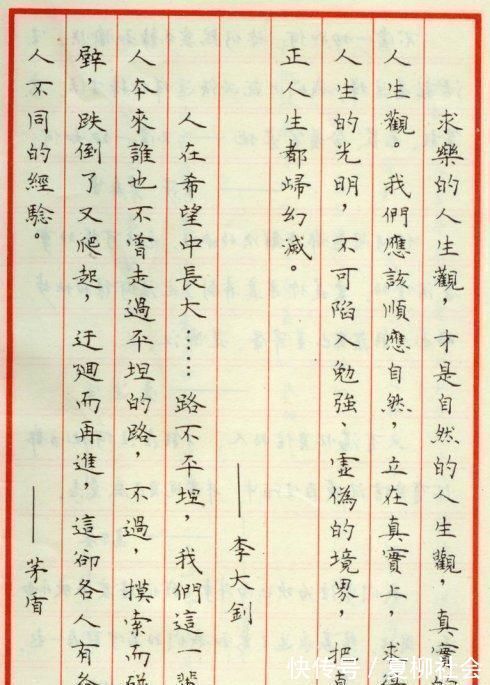 求樂的人生觀,才是自然的人生觀,真實的
人生觀。我們應該順應自然,立在真實上,求得
人生的光明,不可陷勉強、虛偽的境界,把真
正人生都歸幻滅。
——李大釗
人在希望中長大……路不平坦,我們這一輩
人本來誰也不曾走過平坦的路,不過,摸索而碰
壁,跌倒了又爬起,迂迴而再進 這卻各人有各
人不同的經驗。
——茅盾
快传号/夏柳社会